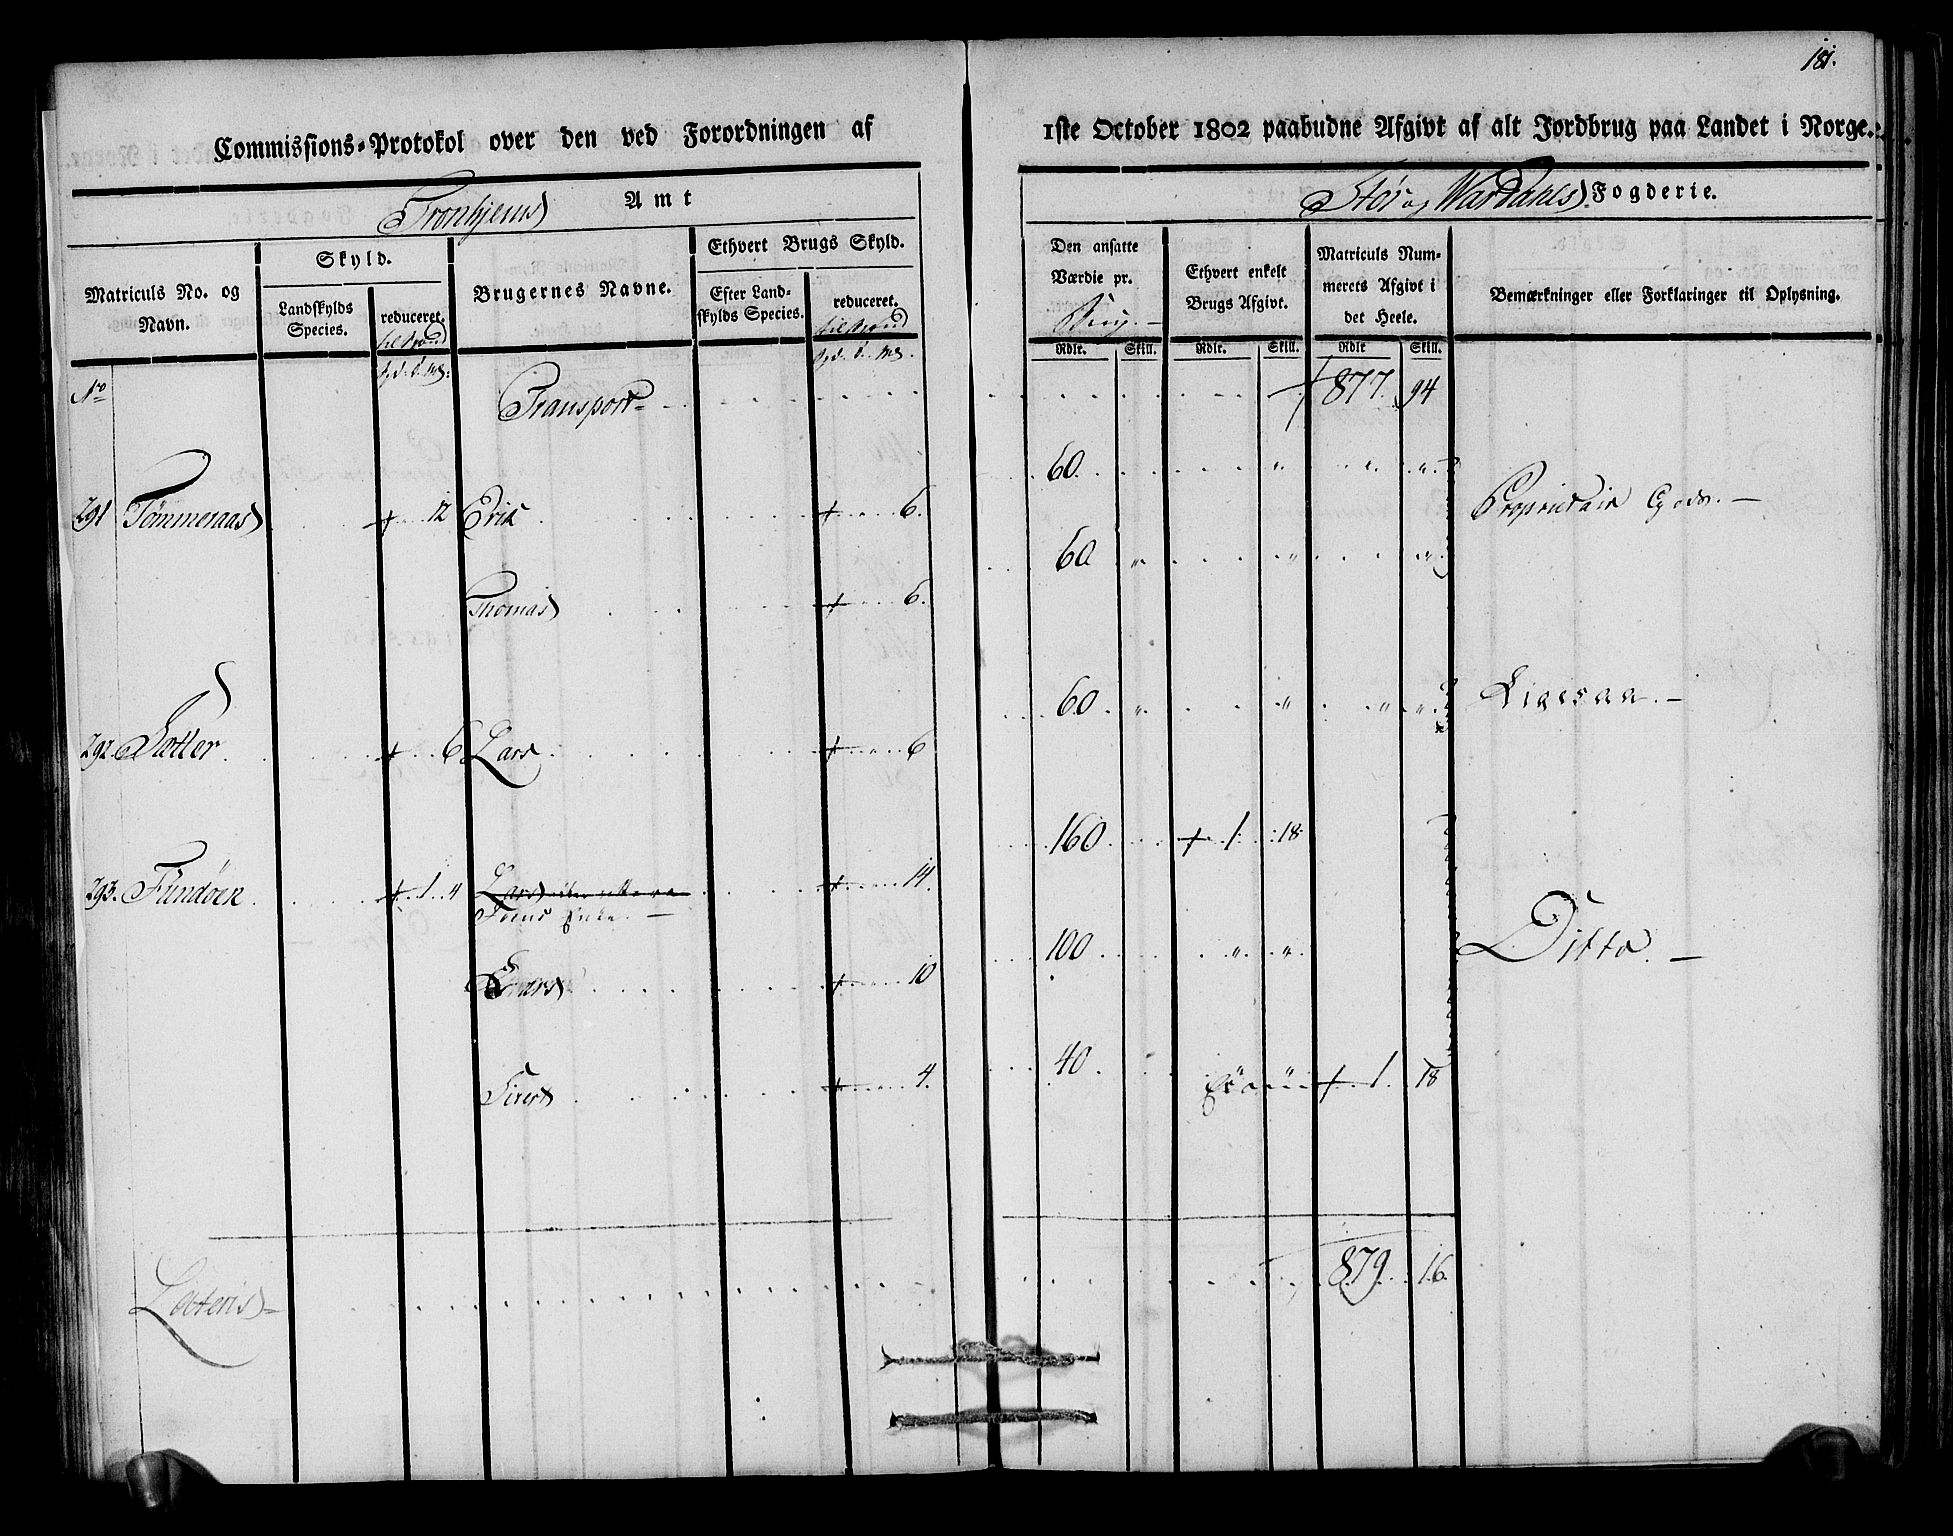 181.
Commissions-Protokol over den ved Forordningen af 1ste October 1802 paabudne Afgivt af alt Jordbrug paa Landet i Norge.
Tronhjems Amt
Stør og Wærdahls Fogderie.
Matriculs No. og Navn.
Skyld.
Landskylds Species.
reduceret.
Brugernes Navne.
Ethvert Brugs Skyld.
Efter Landskylds Species.
reduceret.
Den ansatte Værdie pr.
Brug.
Ethvert enkelt Brugs Afgivt.
Matriculs Nummerets Afgivt i det Heele.
Bemærkninger eller Forklaringer til Oplysning.
Rdlr. Skill. Rdlr. Skill. Rdlr Skill.
No
Transport 877. 94
291 Tømmeraas 12 Erik 6. 60. Proprietair Gods.
Thomas 6. 60
292. Sætter 6 Lars 6 60 Ligesaa.
293. Fundøen 1. 4 Lars 14. 160 1. 18
Enke.
10 100 Ditto.
Sivert 4. 40 1. 18
Lateris 879. 16